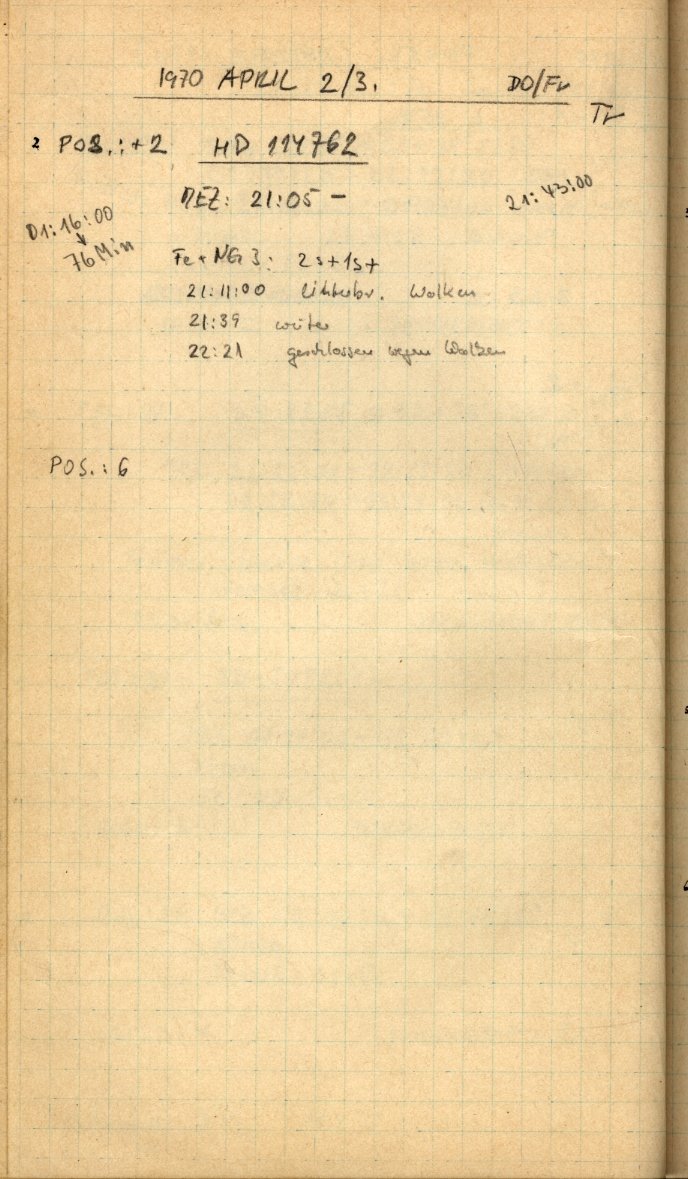 1970 APRIL 2/3. DO/Fr
Tr
2 POS.: +2 HD 114762
MEZ: 21:05 – 21:43:00
01:16:00
↓
76 Min
Fe + NG 3: 2s+1s+
21:11:00 Wolken
21:39 weiter
22:21 geschlossen wegen Wolken
POS.: 6